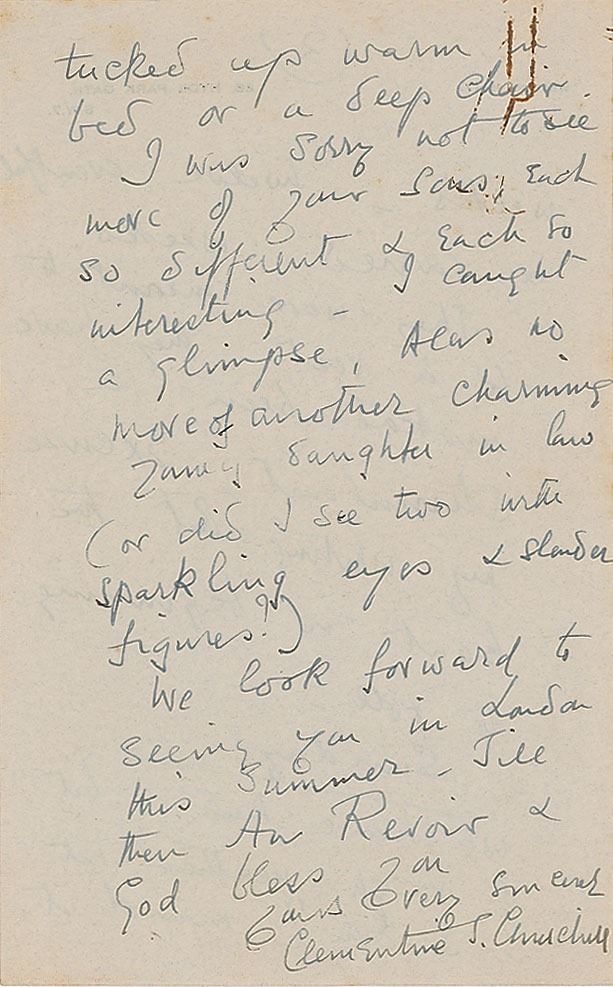 tucked up warm in
bed or a deep chair.
I was sorry not to see
more of your sons; Each
so different & Each so
interesting – I caught
a glimpse, Alas no
more of another charming
young daughter in law
(or did I see two with
sparkling eyes & slender
figures?)
We look forward to
seeing you in London
this Summer – Till
then Au Revoir &
God bless you
Yours Very sincerely
Clementine S. Churchill